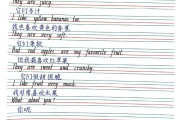 They are juicy.
它们多汁
I like yellow bananas too.
我也喜欢黄色的香蕉
They are very soft.
它们很软
But red apples are my favourite fruit.
但我最喜欢红苹果
They are sweet and crunchy.
它们很甜很脆
I like fruit very much.
我非常喜欢水果
What about you?
你呢